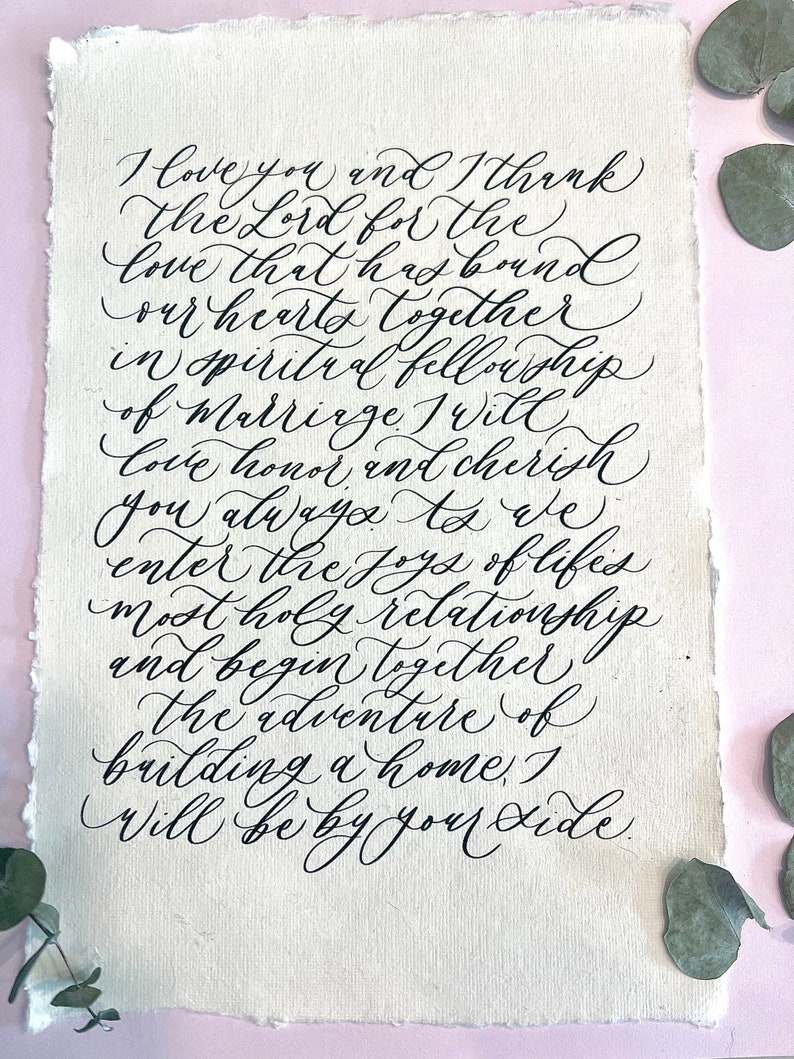 I love you and I thank
the Lord for the
love that has bound
our hearts together
in spiritual fellowship
of Marriage. I will
love honor, and cherish
you always. As we
enter the joys of life's
most holy relationship
and begin together
the adventure of
building a home, I
will be by your side.